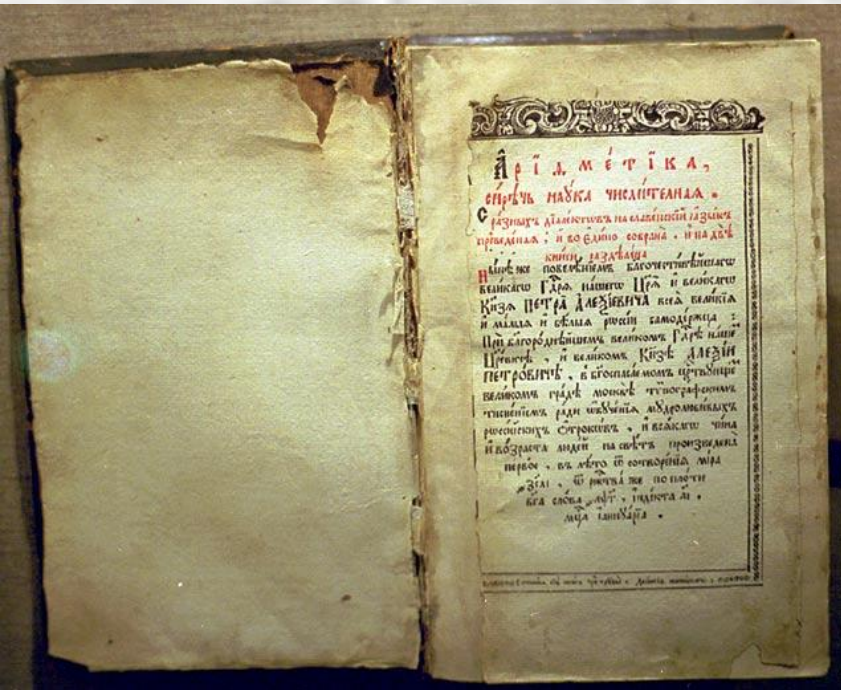 А҆ріѳме́тїка,
си́рѣчь наꙋ́ка числи́телнаѧ.
С ра́зныхъ дїале́ктѡвъ на славе́нскїй ꙗ҆зы́къ
преведе́наѧ, и҆ во є҆ди́но собрана̀, и҆ на двѣ̀
кни̑ги раздѣлена̀.
Ны́нѣ же повелѣ́нїемъ благочести́вѣйшагѡ
вели́кагѡ Гд҃рѧ на́шегѡ Цр҃ѧ̀ и҆ вели́кагѡ
Кн҃зѧ ПЕТРА̀ АЛЕѮІ́ЕВИЧА всеѧ̀ вели́кїѧ
и҆ ма́лыѧ и҆ бѣ́лыѧ рѡссі́и самоде́ржца:
Прѝ благоро́днѣйшемъ вели́комъ Гд҃рѣ на́шемъ
Цр҃е́вичѣ, и҆ вели́комъ Кн҃зѣ АЛЕѮІ́И
ПЕТРО́ВИЧѢ, в бг҃оспаса́емомъ цр҃твꙋющемъ
вели́комъ гра́дѣ москвѣ̀ тѷпогра́фскимъ
тисне́нїемъ ра́ди ѡ҆бꙋче́нїѧ мꙋдролюби́выхъ
рѡссі́йскихъ ѻ҆́трокѡвъ, и҆ всѧ́кагѡ чи́на
и҆ во́зраста люде́й на свѣ́тъ произведена̀
пе́рвое, въ лѣ́то ѿ сотворе́нїѧ мі́ра
҂зсаі, ѿ рж҃тва́ же по пло́ти
бг҃а сло́ва ҂аѱг, і҆нді́кта аі,
мц҃а і҆аннꙋа́рїа.